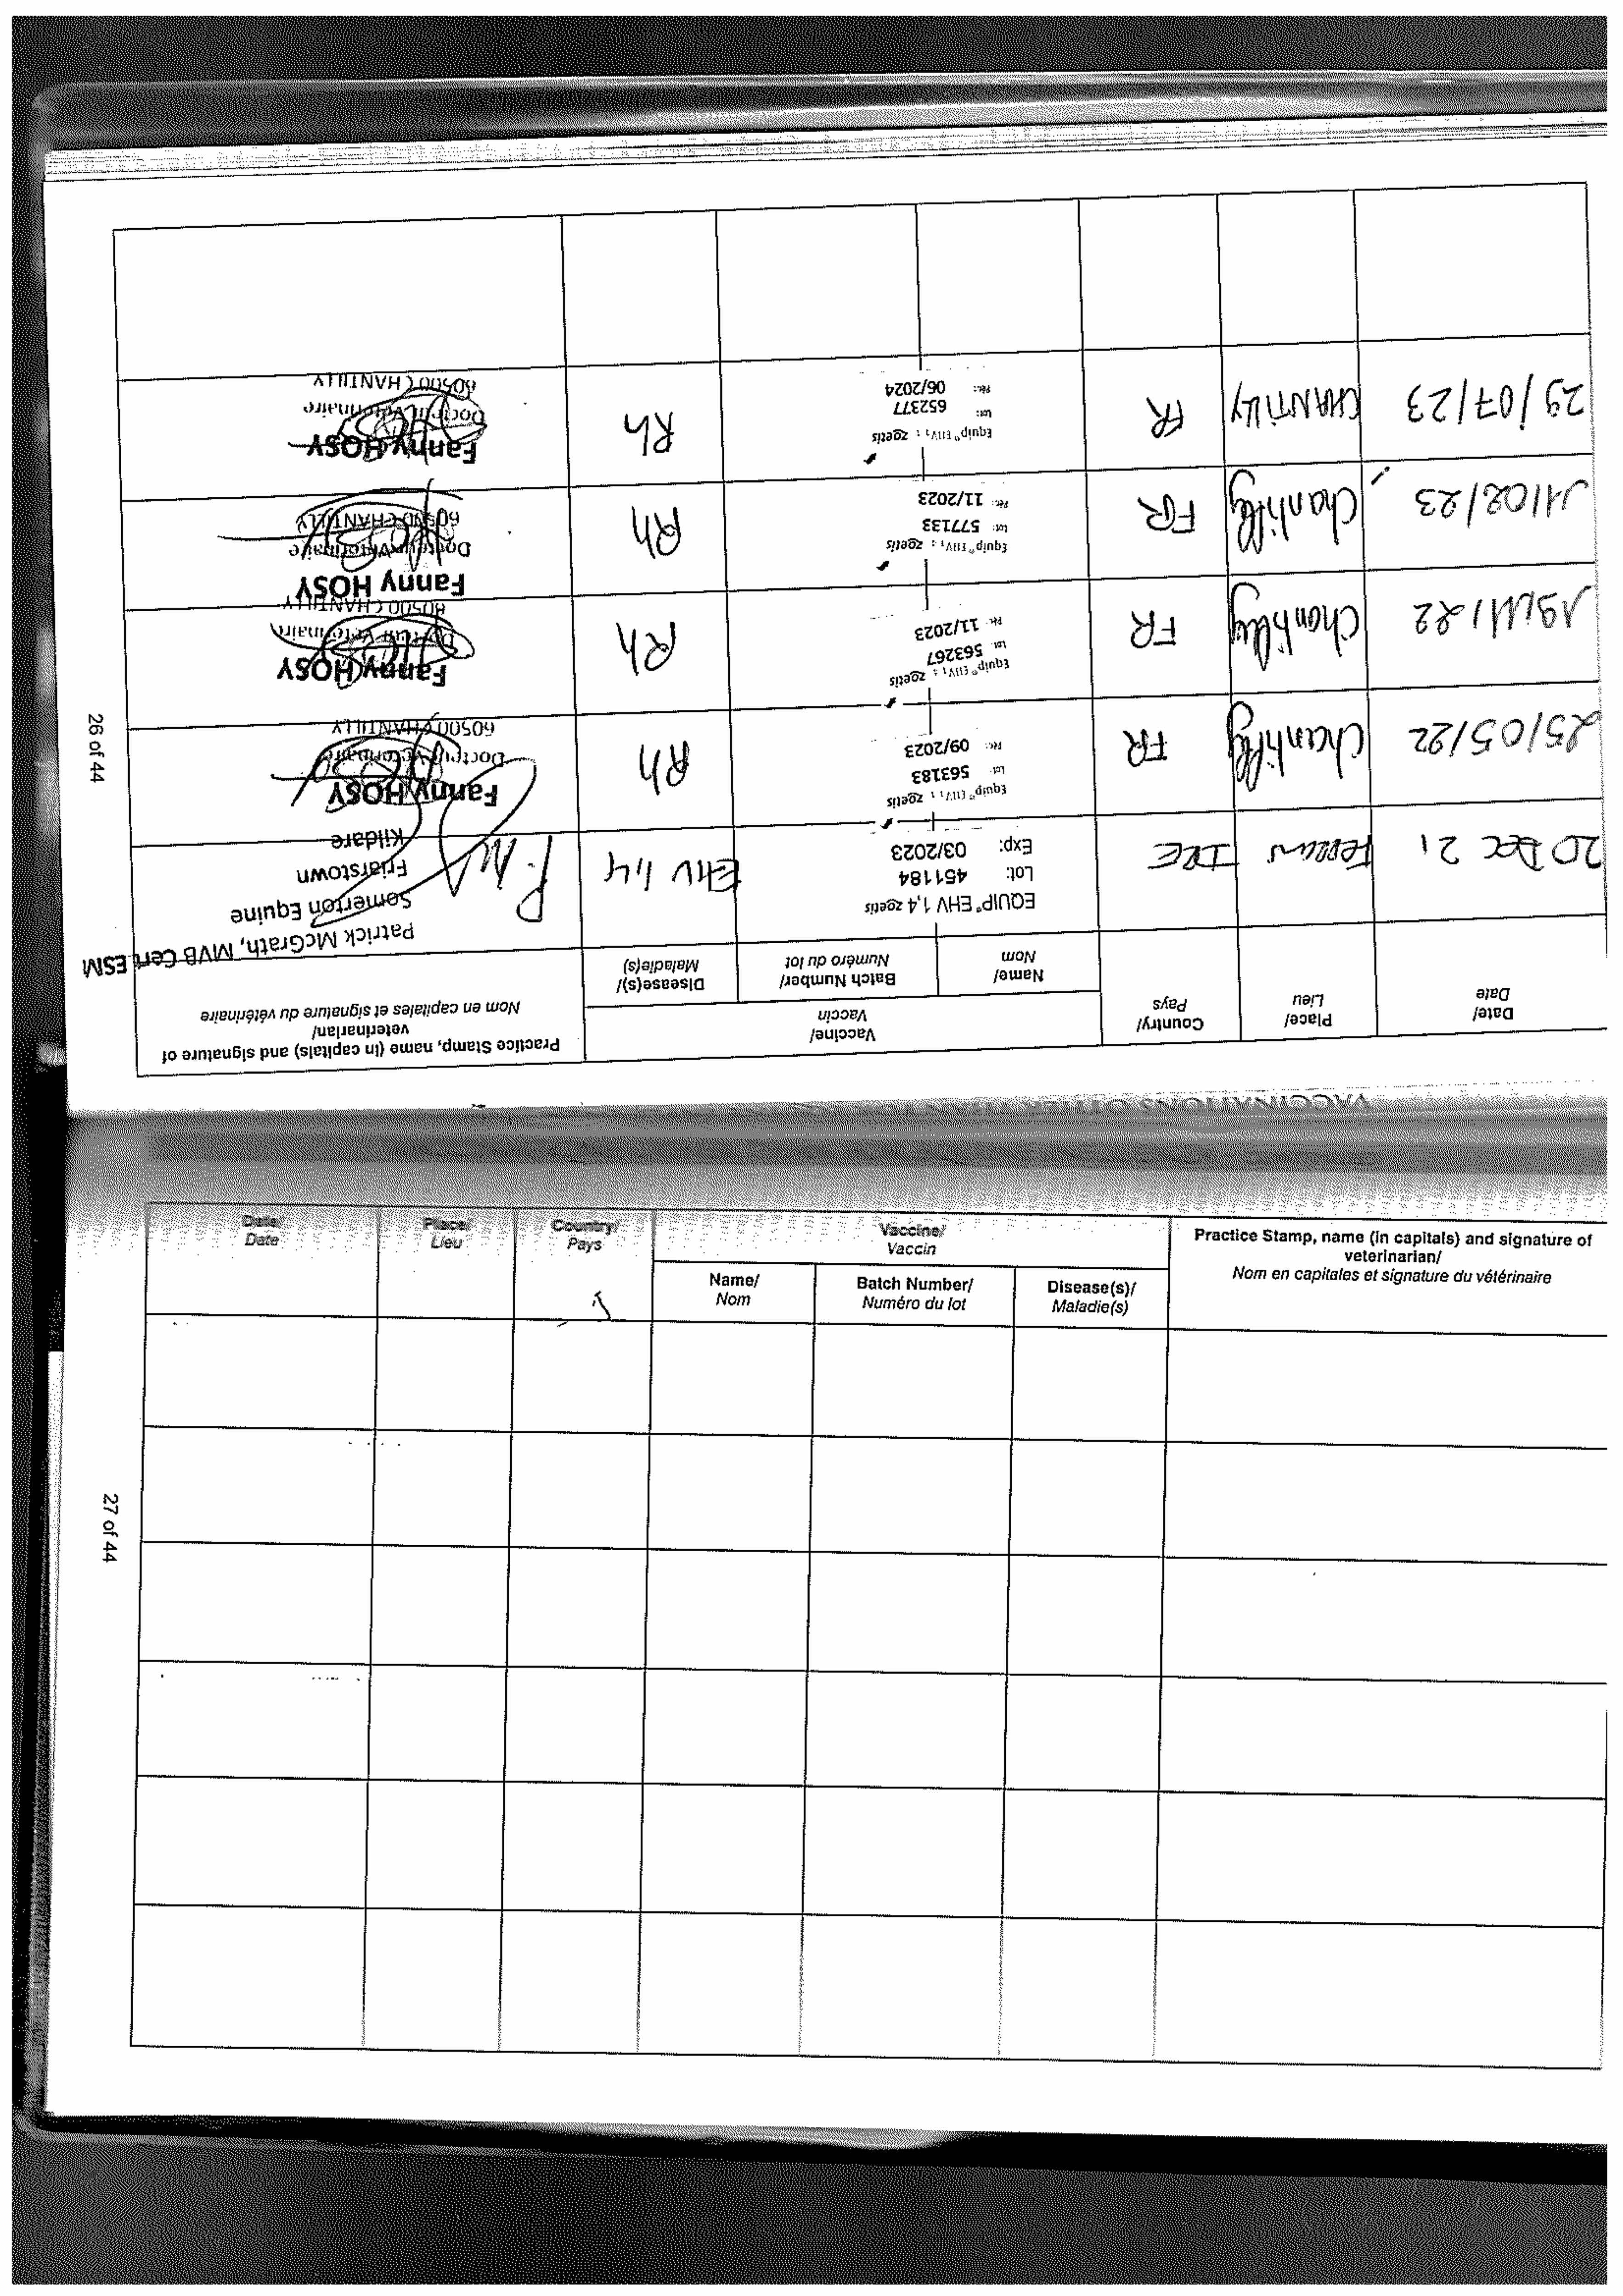 VACCINATIONS OTHER THAN
Date/
Date
Place/
Lieu
Country/
Pays
Vaccine/
Vaccin
Name/
Nom
Batch Number/
Numéro du lot
Disease(s)/
Maladie(s)
Practice Stamp, name (in capitals) and signature of
veterinarian/
Nom en capitales et signature du vétérinaire
20 DEC 21
IRE
EQUIP® EHV 1,4 zoetis
Lot: 451184
Exp: 03/2023
EHV 1,4
Patrick McGrath, MVB Cert ESM
Somerton Equine
Friarstown
Kildare
25/05/22
Chantilly
FR
Equip® EHV1,4 zoetis
Lot: 563183
Pér.: 09/2023
Rh
Fanny HOSY
Docteur Vétérinaire
60500 CHANTILLY
19/11/22
Chantilly
FR
Equip® EHV1,4 zoetis
Lot: 563267
Pér.: 11/2023
Rh
Fanny HOSY
Docteur Vétérinaire
60500 CHANTILLY
11/02/23
Chantilly
FR
Equip® EHV1,4 zoetis
Lot: 577133
Pér.: 11/2023
Rh
Fanny HOSY
Docteur Vétérinaire
60500 CHANTILLY
29/07/23
CHANTILLY
FR
Equip® EHV1,4 zoetis
Lot: 652377
Pér.: 06/2024
Rh
Fanny HOSY
Docteur Vétérinaire
60500 CHANTILLY
26 of 44
Date/
Date
Place/
Lieu
Country/
Pays
Vaccine/
Vaccin
Name/
Nom
Batch Number/
Numéro du lot
Disease(s)/
Maladie(s)
Practice Stamp, name (in capitals) and signature of
veterinarian/
Nom en capitales et signature du vétérinaire
27 of 44